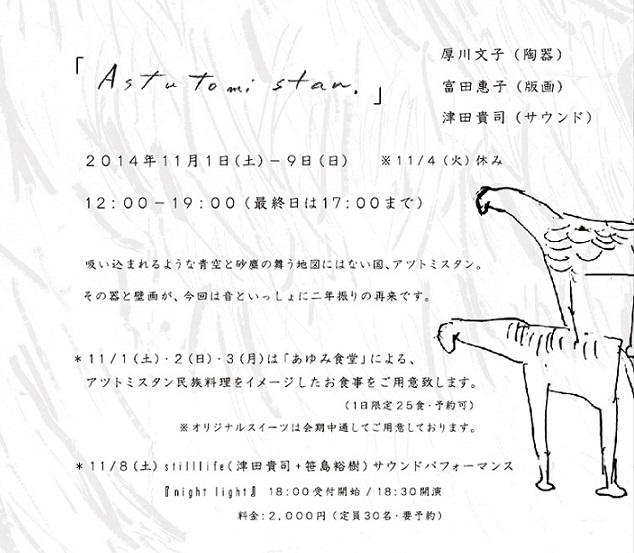 「Astutomi stan.」
厚川文子(陶器)
富田惠子(版画)
津田貴司(サウンド)
2014年11月1日(土)-9日(日) ※11/4(火)休み
12:00-19:00(最終日は17:00まで)
吸い込まれるような青空と砂塵の舞う地図にはない国、アツトミスタン。
その器と壁画が、今回は音といっしょに二年振りの再来です。
*11/1(土)・2(日)・3(月)は「あゆみ食堂」による、
アツトミスタン民族料理をイメージしたお食事をご用意致します。
(1日限定25食・予約可)
※オリジナルスイーツは会期中通してご用意しております。
*11/8(土)stilllife(津田貴司+笹島裕樹)サウンドパフォーマンス
『night light』 18:00受付開始/18:30開演
料金:2,000円(定員30名・要予約)